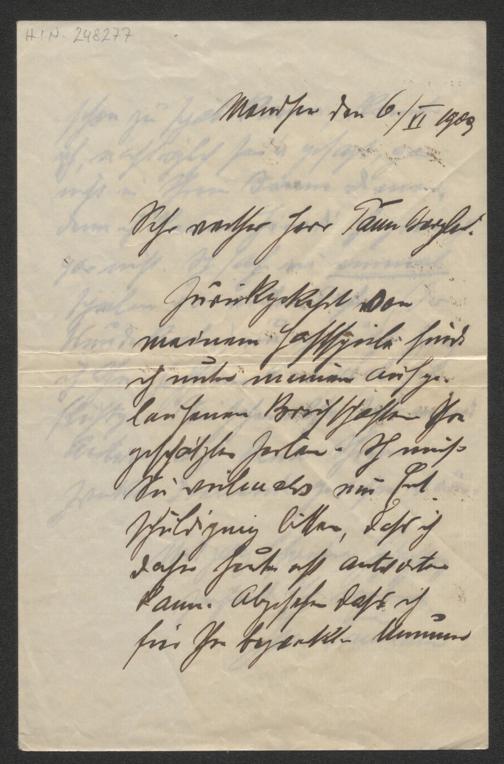 H.I.N. 248277
den 6./VI 1909
Sehr werther Herr
Zurückgekehrt von
meinem Gastspiele finde
ich unter meinen aufge-
laufenen Briefschaften Ihre
geschätzten Zeilen. Ich muß
Sie vielmals um Ent
schuldigung bitten, daß ich
daher heute erst antworten
kann. Abgesehen daß ich
für Ihre